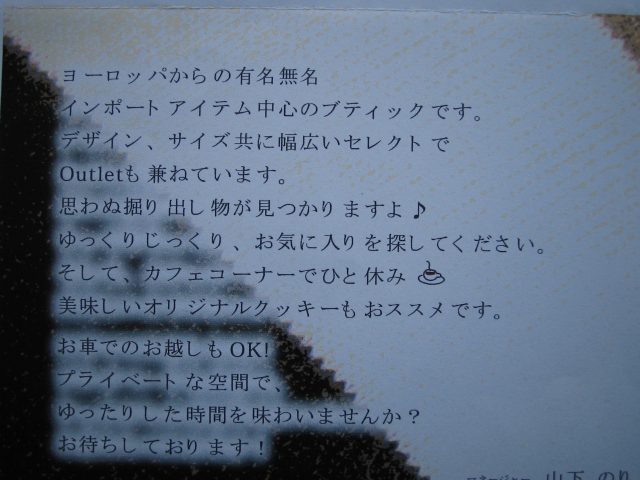 ヨーロッパからの有名無名
インポートアイテム中心のブティックです。
デザイン、サイズ共に幅広いセレクトで
Outletも兼ねています。
思わぬ掘り出し物が見つかりますよ♪
ゆっくりじっくり、お気に入りを探してください。
そして、カフェコーナーでひと休み
美味しいオリジナルクッキーもおススメです。
お車でのお越しもOK!
プライベートな空間で、
ゆったりした時間を味わいませんか？
お待ちしております！
山下 のり